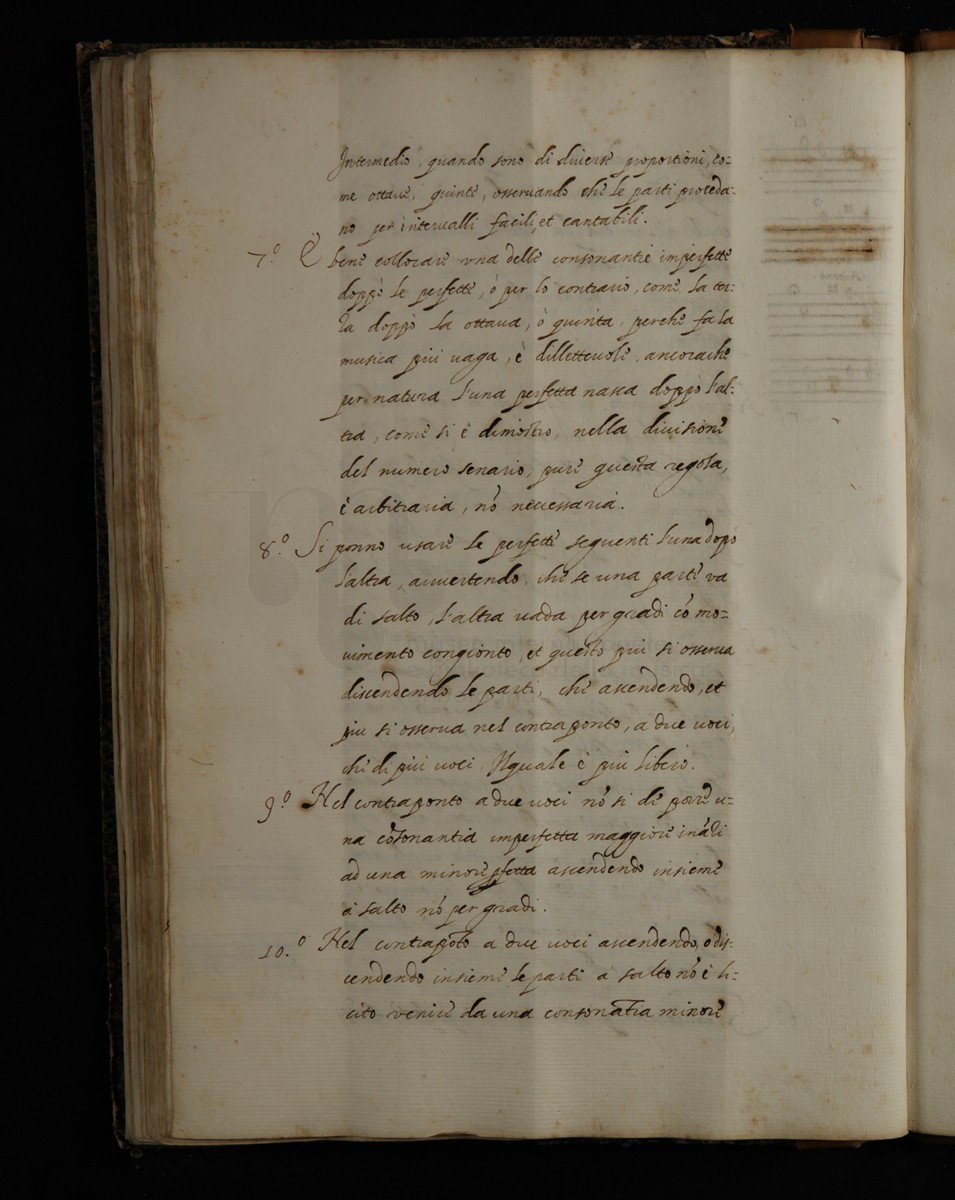 Intermedio, quando sono di diverse proportioni, co=
me ottave, quinte, osservando che le parti proceda=
no per intervalli facili, et cantabili.
7.º È bene collocare una delle consonantie imperfette
doppò le perfette, ò per lo contrario, come la ter=
za doppò la ottava, ò quinta, perche fa la
musica più vaga, è dillettevole, ancorache
per natura l'una perfetta nasca doppò l'al=
tra, come si è dimostro, nella divisione
del numero senario, pure questa regola,
è arbitraria, nõ necessaria.
8.º Si ponno usare le perfette seguenti l'una dopo
l'altra, avvertendo, che se una parte va
di salto, l'altra vada per gradi cõ mo=
vimento congionto, et questo più si osserva
discendendo le parti, che ascendendo, et
più si osserva nel contraponto, a due voci,
che di più voci Il quale è più libero.
9.º Nel contraponto a due voci nõ si de porre u=
na cõsonantia imperfetta maggiore inãzi
ad una minore ascendendo insieme
à salto nõ per gradi.
10.º Nel contrapõto a due voci ascendendo, o dis=
cendendo insieme le parti à salto nõ è li=
cito venire da una consonãtia minore